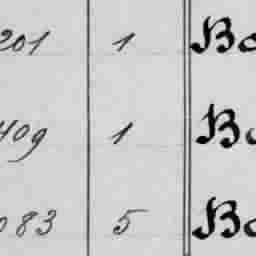 201 1 Bo
409 1 Bo
083 5 Bo